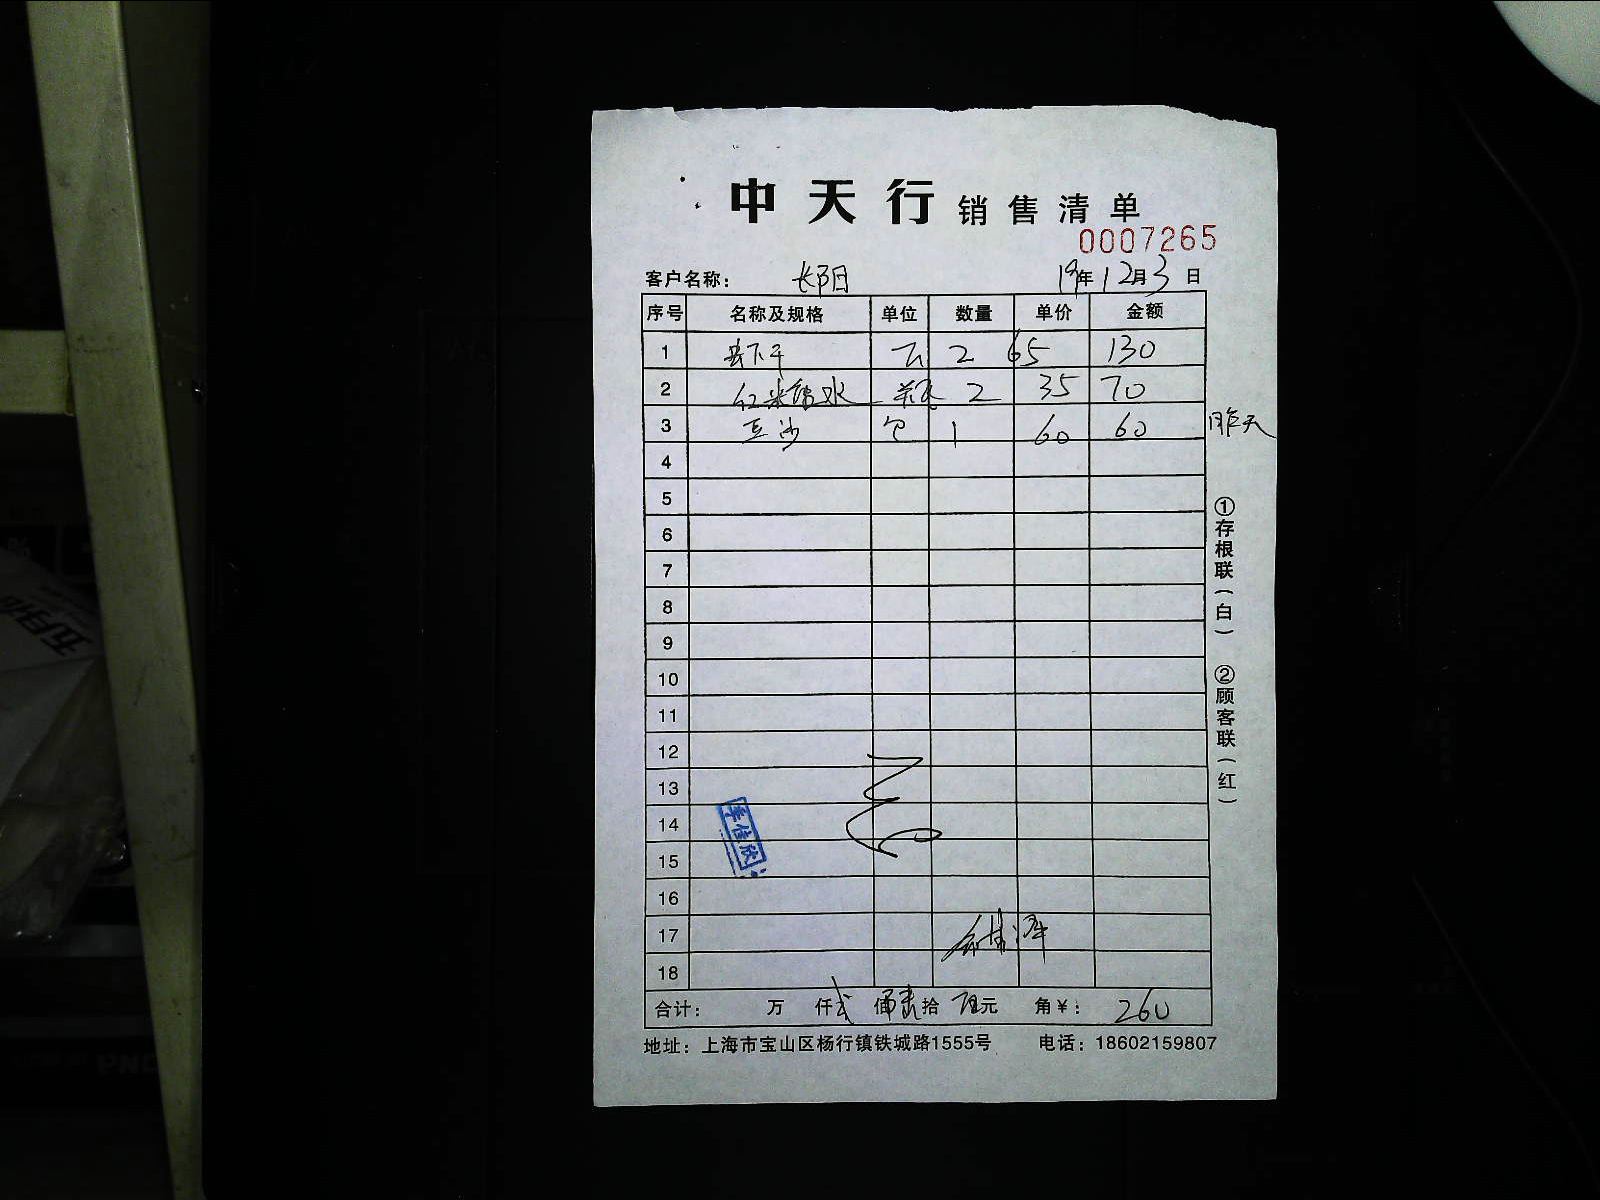 中天行 销售清单
0007265
客户名称： 长阳 19年12月3日
序号 名称及规格 单位 数量 单价 金额
1 2 65 130
2 红米 水 瓶 2 35 70
3 豆沙 包 1 60 60 昨天
4
5
6
7
8
9
10
11
12
13
14
15
16
17
18
季佳欣
合计： 万 仟 贰 佰 陆 拾 零 元 角￥： 260
地址：上海市宝山区杨行镇铁城路1555号 电话：18602159807
①存根联（白） ②顾客联（红）
五月花